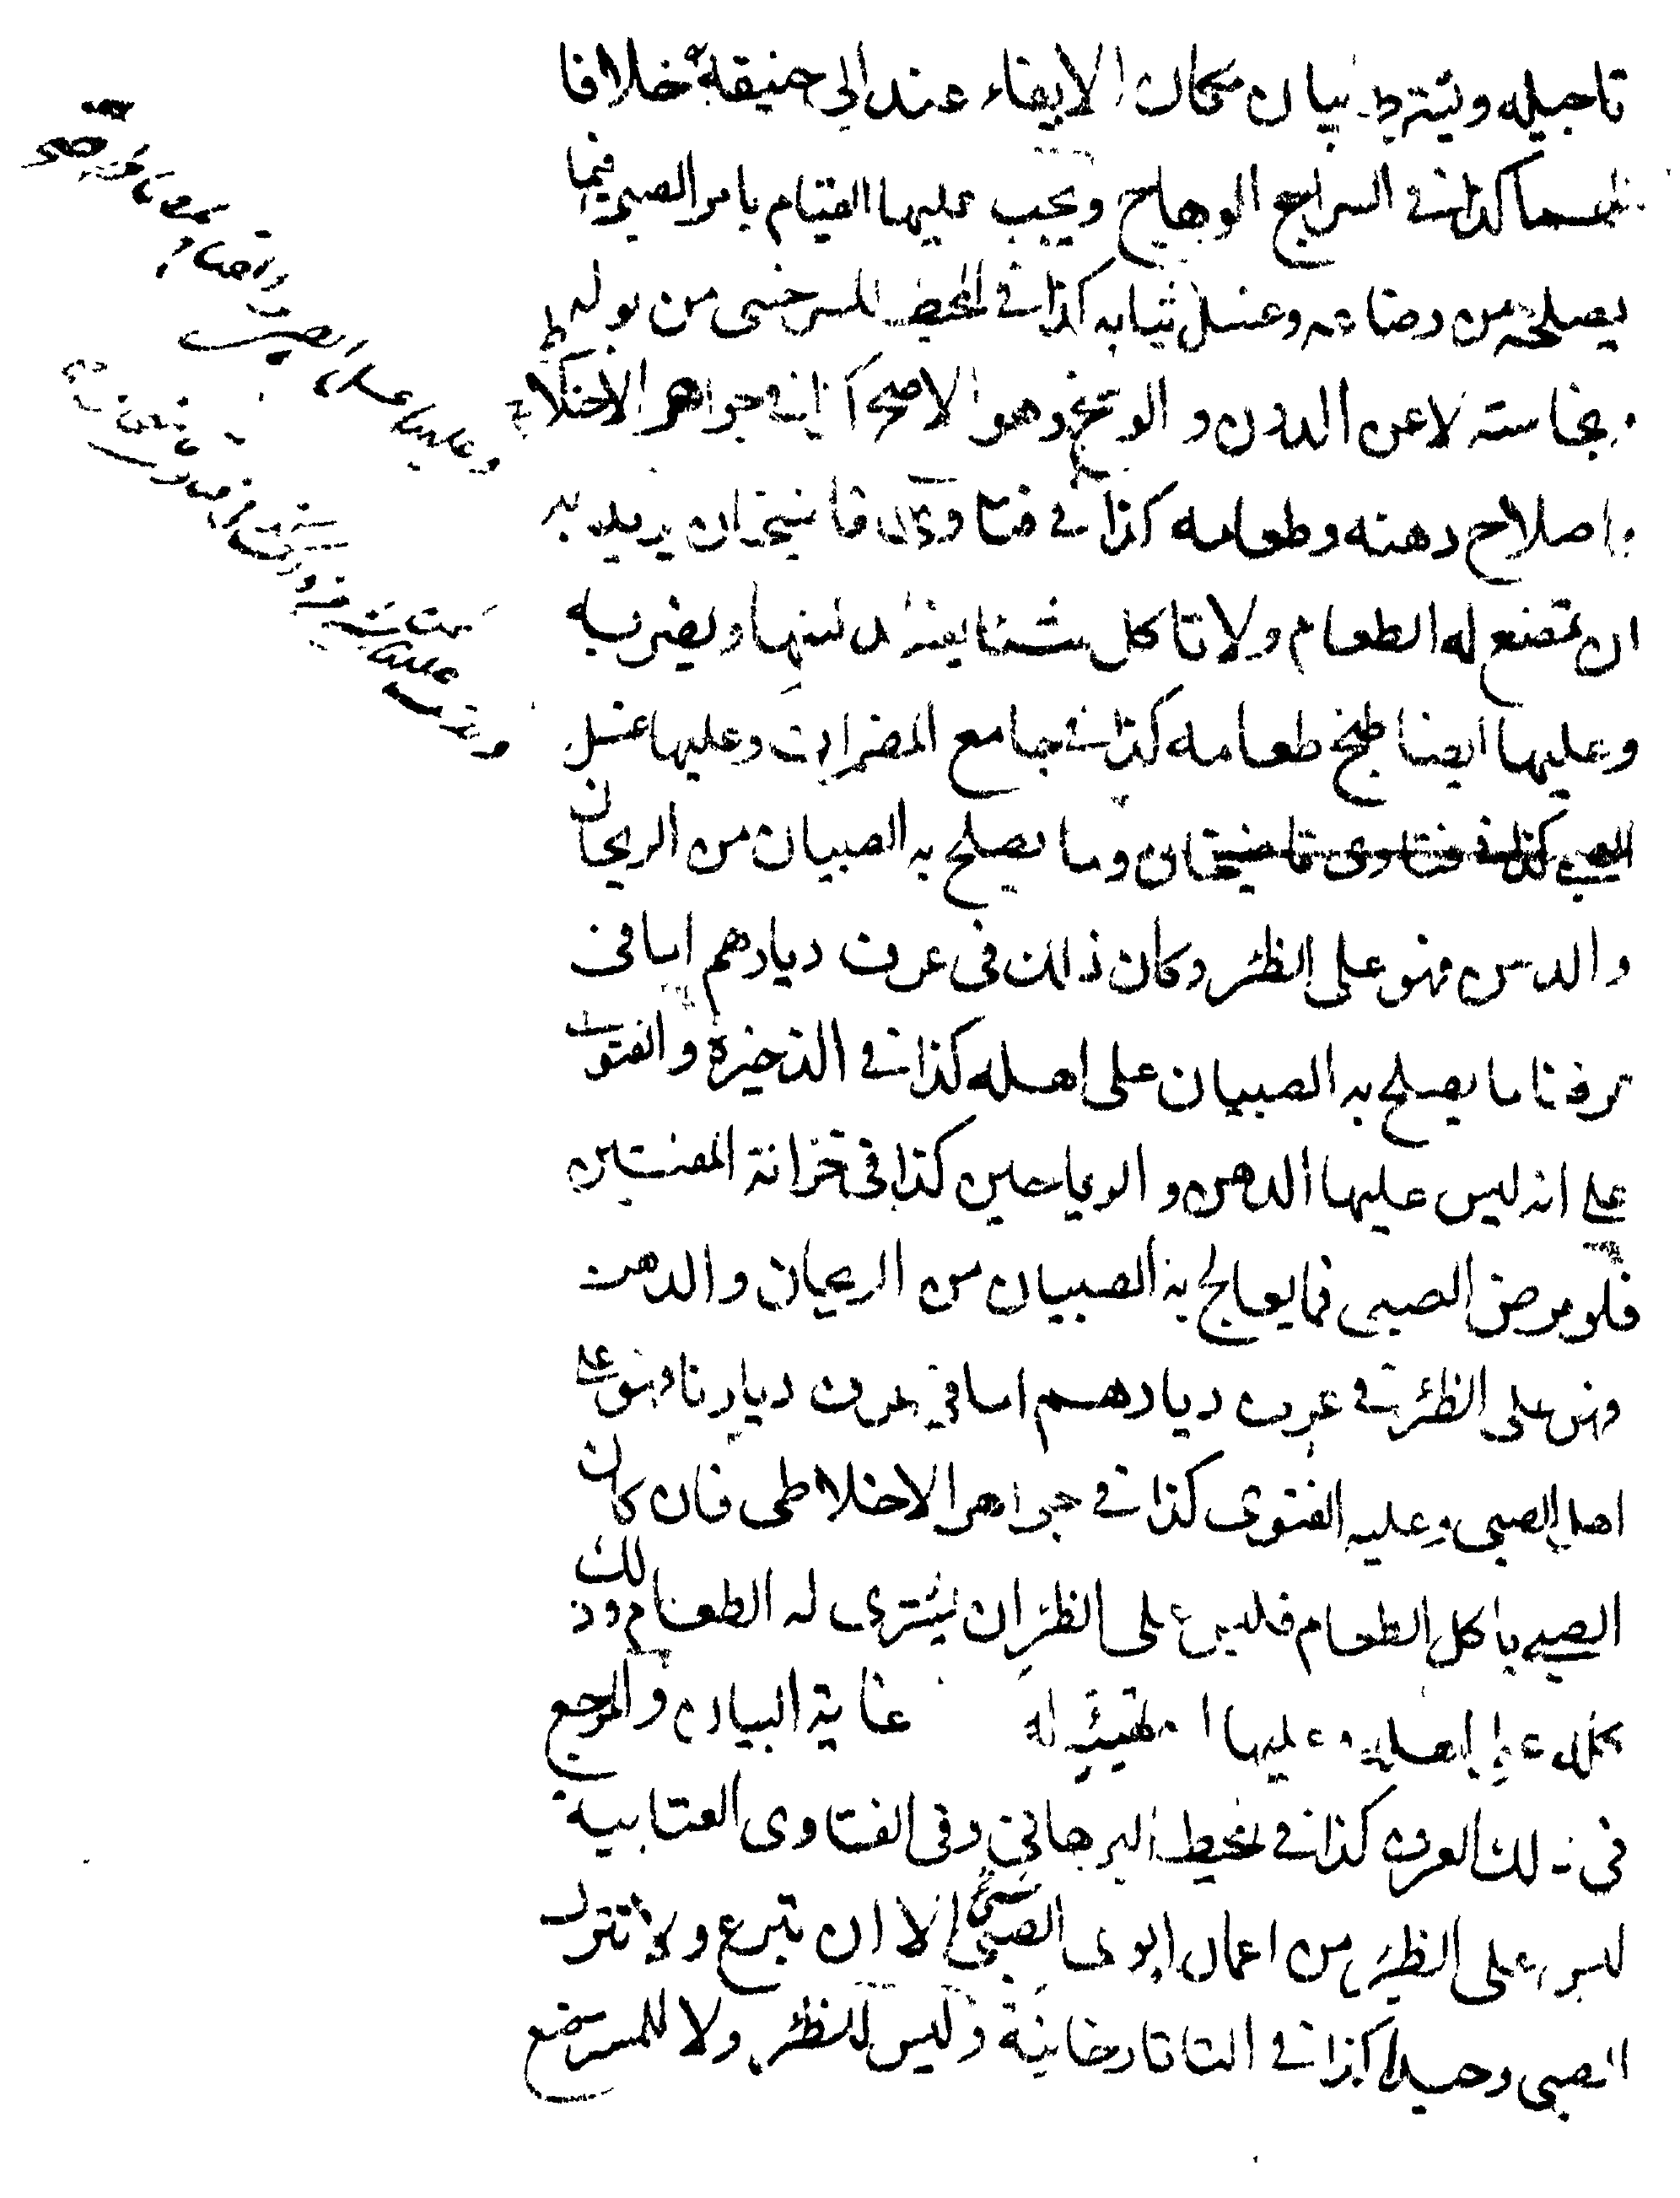 تاجيله ويشترط بيان مكان الايفاء عند ابى حنيفة خلافا
لهما كذا فى السراج الوهاج ويجب عليها القيام بامر الصبى فيما
يصلحه من رضاعه وغسل ثيابه كذا فى المحيط للسرخسى من بوله
ونجاسته لا عن الدرن والوسخ وهو الاصح كذا فى جواهر الاخلاطى
واصلاح دهنه وطعامه كذا فى فتاوى قاضيخان يريد به
ان تصنع له الطعام ولا تاكل شيئا يفسد لبنها ويضر به
وعليها ايضا طبخ طعامه كذا فى جامع المضمرات وعليها غسل
الصبى كذا فى فتاوى قاضيخان وما يصلح به الصبيان من الريحان
والدهن فهو على الظئر وكان ذلك فى عرف ديارهم اما فى
عرفنا ما يصلح به الصبيان على اهله كذا فى الذخيرة والفتوى
على انه ليس عليها الدهن والرياحين كذا فى خزانة المفتين
فلو مرض الصبى فما يعالج به الصبيان من الريحان والدهن
فهو على الظئر فى عرف ديارهم اما فى عرف ديارنا فهو على
اهل الصبى وعليه الفتوى كذا فى جواهر الاخلاطى فان كان
الصبى ياكل الطعام فليس على الظئر ان يشترى له الطعام وذلك
كله على اهله وعليها ان تهيئه له غاية البيان والمرجع
فى ذلك العرف كذا فى محيط البرهانى وفى الفتاوى العتابية
ليس على الظئر من اعمال ابوى الصبى شئ الا ان تتبرع ولا تترك
الصبى وحيدا كذا فى التاتارخانية وليس للظئر ولا للمسترضع